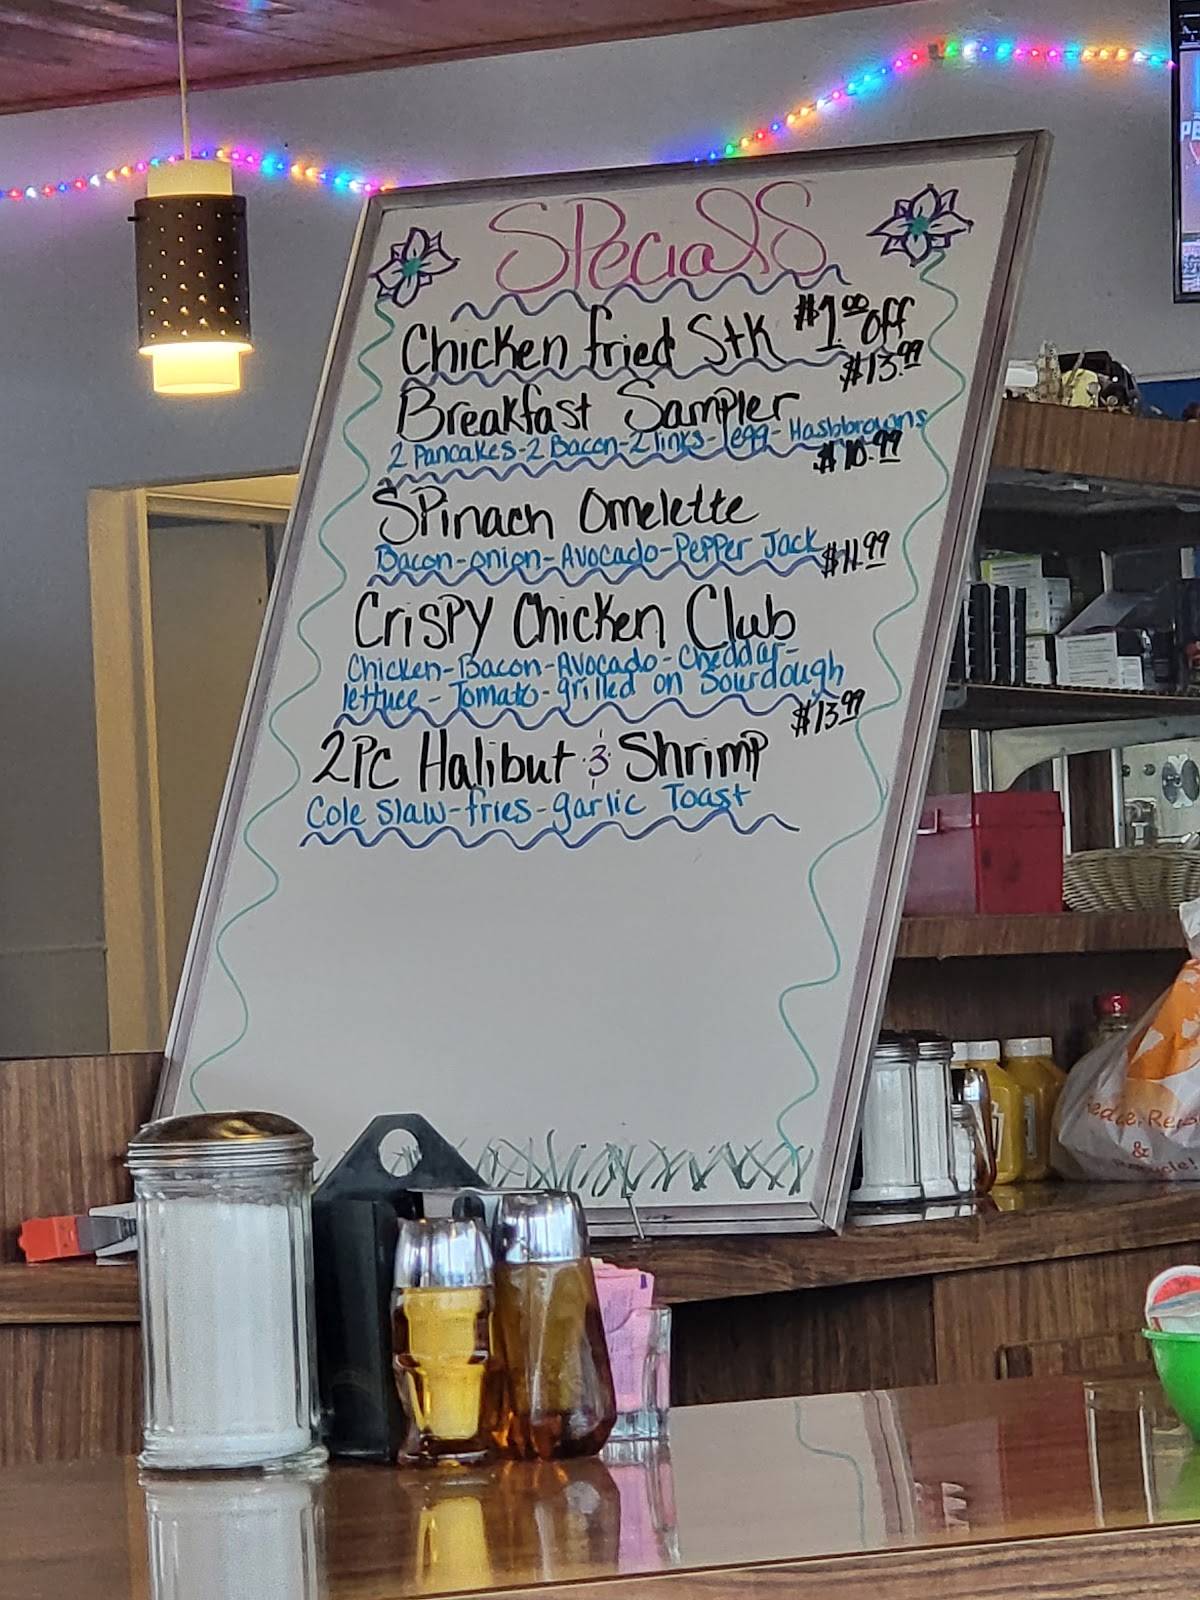 Specials
Chicken fried Stk $1.00 off
$13.99
Breakfast Sampler
2 Pancakes-2 Bacon-2 links-1egg-Hashbrowns
$10.99
Spinach Omelette
Bacon-onion-Avocado-Pepper Jack
$11.99
Crispy Chicken Club
Chicken-Bacon-Avocado-Cheddar-
lettuce-Tomato-grilled on Sourdough
$13.99
2pc Halibut & Shrimp
Cole Slaw-fries-garlic Toast
&